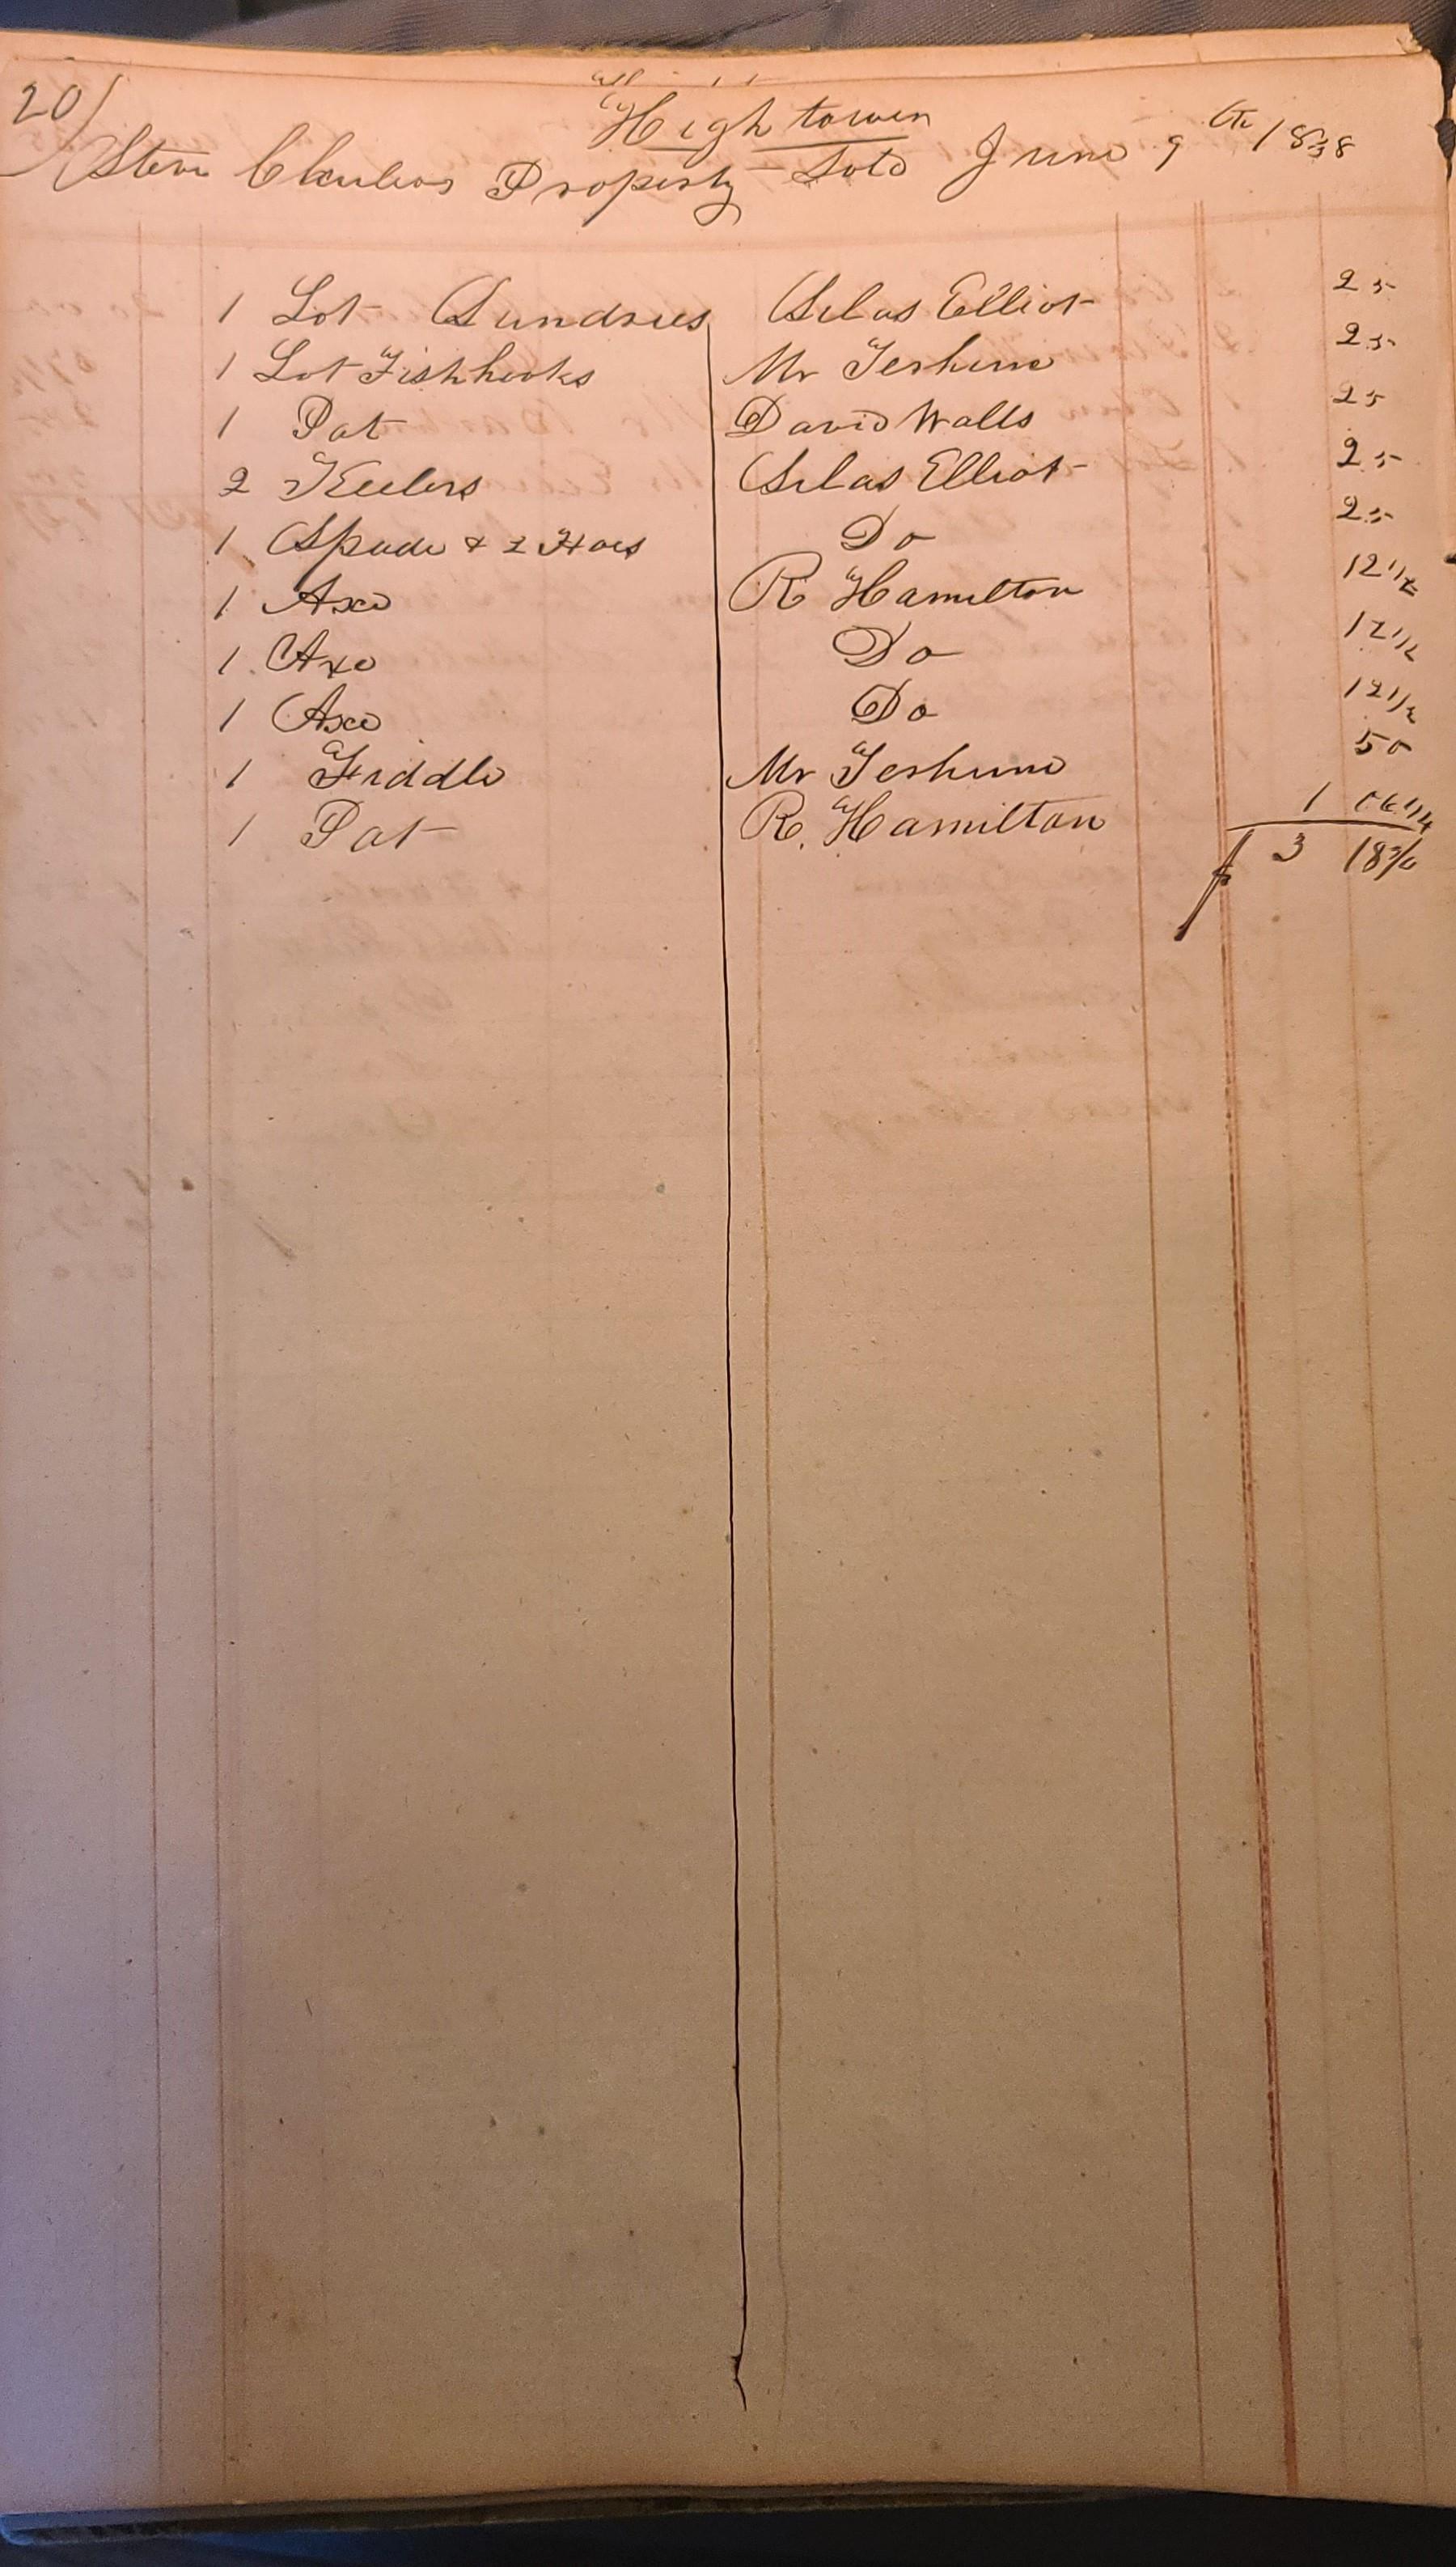 20/
Hightower
Property Sold June 9th 1838
1 Lot Sundries Silas Elliot 25
1 Lot Fishhooks Mr Terhune 25
1 Pot David Walls 25
2 Keelers Silas Elliot 25
1 Spade & 2 Hoes Do 25
1 Axe R Hamilton 12 1/2
1 Axe Do 12 1/2
1 Axe Do 12 1/2
1 Fiddle Mr Terhune 50
1 Pot R. Hamilton 1 06 1/4
$ 3 18 3/4